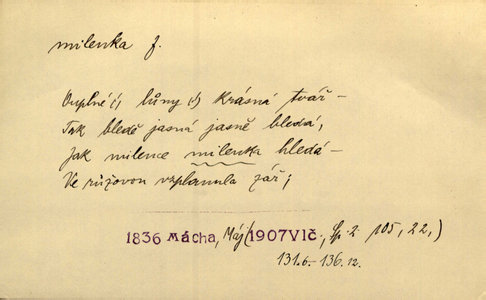 milenka f.
Ouplné(,) lůny (,) krásná tvář –
Tak bledě jasná jasně bledá,
Jak milence milenka hledá –
Ve růžovou vzplanula zář;
1836 Mácha, Máj (1907 Vlč., Sp. 2 105, 22,)
131.6. – 136.12.